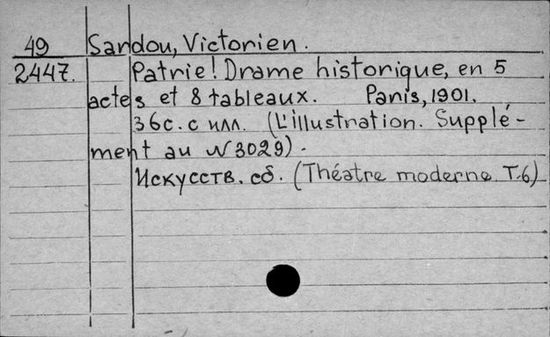 49 Sardou, Victorien.
2447. Patrie! Drame historique, en 5
actes et 8 tableaux. Paris, 1901.
36 с. с илл. (L'illustration. Supplé-
ment au N 3029).
Искусств. сб. (Théatre moderne T.6)